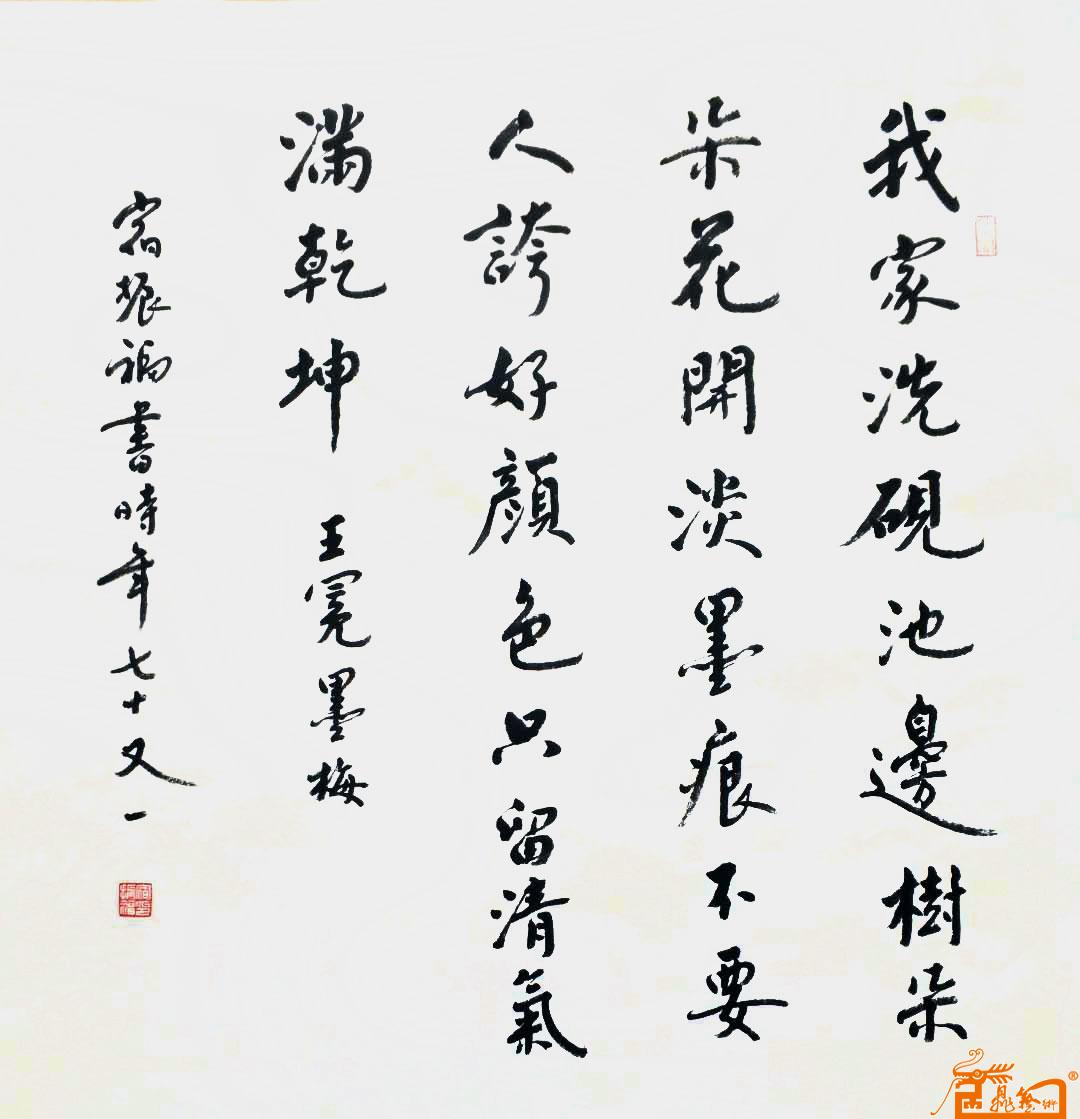 我家洗硯池邊樹朵
朵花開淡墨痕不要
人誇好顏色只留清氣
滿乾坤 王冕墨梅
宿振福書時年七十又一